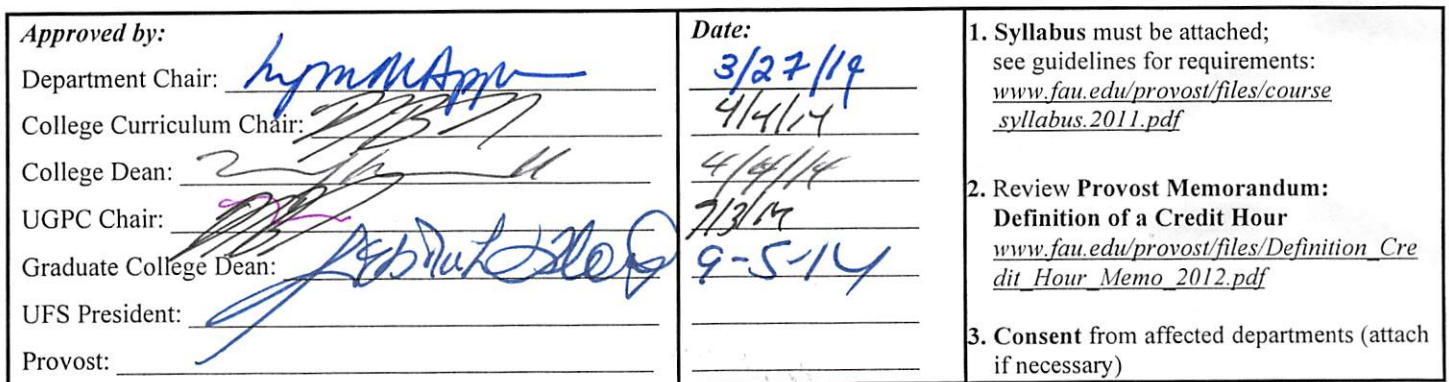 Approved by:
Department Chair:
College Curriculum Chair:
College Dean:
UGPC Chair:
Graduate College Dean:
UFS President:
Provost:
Date:
3/27/14
4/4/14
4/4/14
9-5-14
1. Syllabus must be attached;
see guidelines for requirements:
www.fau.edu/provost/files/course
_syllabus.2011.pdf
2. Review Provost Memorandum:
Definition of a Credit Hour
www.fau.edu/provost/files/Definition_Cre
dit_Hour_Memo_2012.pdf
3. Consent from affected departments (attach
if necessary)